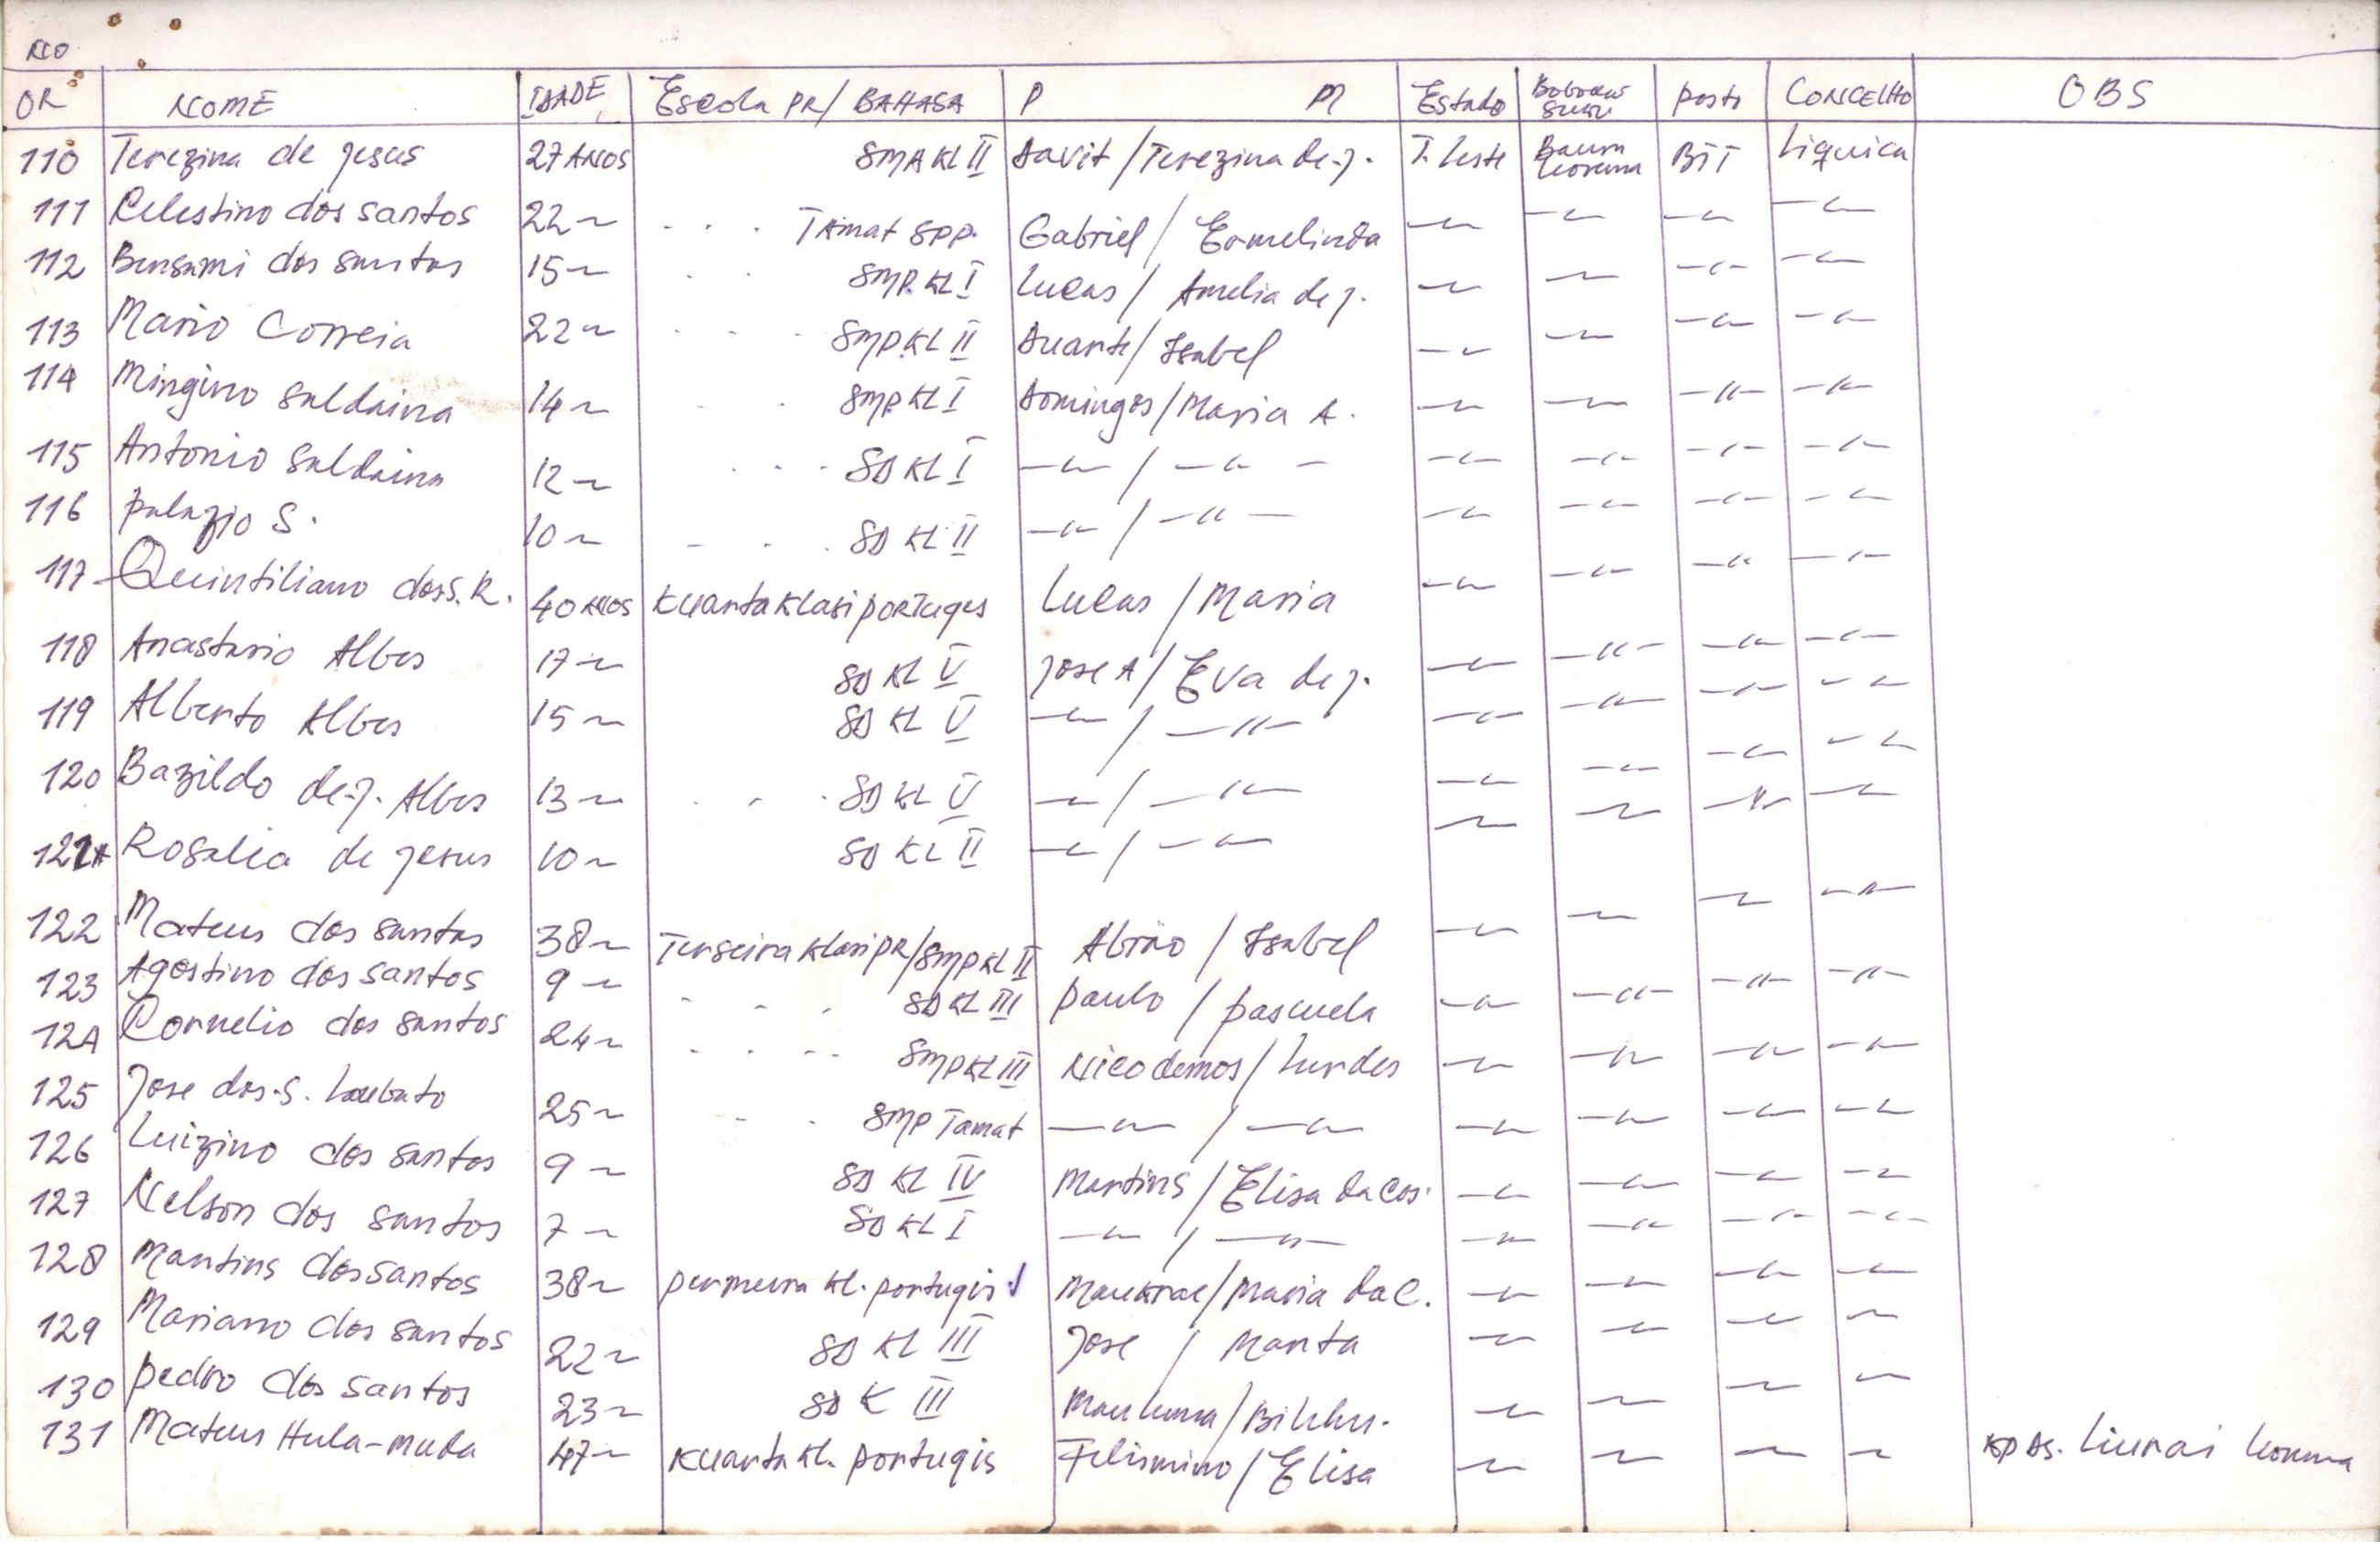 NO
OR NOME IDADE Escola PR/ BAHASA P M Estado Suku Posto CONCELHO OBS
110 Terezina de Jesus 27 ANOS SMA KL II Davit / Terezina de J. T. Leste BTT Liquica
111 Celestino dos santos 22 ~ - - - TAmat SPP. Gabriel / Ermelinda —〃— —〃— —〃— —〃—
112 dos santos 15 ~ - - SMP. KL I Lucas / Amelia de J. —〃— —〃— —〃— —〃—
113 Mario Correia 22 ~ - - - - SMP. KL II Duarte / Isabel —〃— —〃— —〃— —〃—
114 Mingino Saldaina 14 ~ - - SMP KL I Domingos / Maria A. —〃— —〃— —〃— —〃—
115 Antonio Saldaina 12 ~ - - - SD KL I —〃— / —〃— —〃— —〃— —〃— —〃—
116 S. 10 ~ - - - SD KL II —〃— / —〃— —〃— —〃— —〃— —〃—
117 Quintiliano dos S. R. 40 ANOS Kuarta Klasi portuges Lucas / Maria —〃— —〃— —〃— —〃—
118 Anastasio Albes 17 ~ SD KL V Jose A / Eva de J. —〃— —〃— —〃— —〃—
119 Alberto Albes 15 ~ SD KL V —〃— / —〃— —〃— —〃— —〃— —〃—
120 Bazildo de J. Albes 13 ~ - - - SD KL V —〃— / —〃— —〃— —〃— —〃— —〃—
121 Rosalia de Jesus 10 ~ SD KL II —〃— / —〃— —〃— —〃— —〃— —〃—
122 Mateus dos santos 38 ~ Terseira Klasi PR/SMP KL II Abrao / Isabel —〃— —〃— —〃— —〃—
123 Agostino dos santos 9 ~ - - - SD KL III Paulo / Pascuela —〃— —〃— —〃— —〃—
124 Cornelio dos santos 24 ~ - - - - SMP KL III Nicodemos / Lurdes —〃— —〃— —〃— —〃—
125 Jose dos. S. Loubato 25 ~ - - SMP Tamat —〃— / —〃— —〃— —〃— —〃— —〃—
126 Luizino dos santos 9 ~ SD KL IV Martins / Elisa da Cos. —〃— —〃— —〃— —〃—
127 Nelson dos santos 7 ~ SD KL I —〃— / —〃— —〃— —〃— —〃— —〃—
128 Martins dos santos 38 ~ permeira kl. portugis / Maria da C. —〃— —〃— —〃— —〃—
129 Mariano dos santos 22 ~ SD KL III Jose / Marta —〃— —〃— —〃— —〃—
130 Pedro dos santos 23 ~ SD K III / —〃— —〃— —〃— —〃—
131 Mateus Hula-muda 47 ~ Kuarta kl. portugis Felismino / Elisa —〃— —〃— —〃— —〃— Liurai